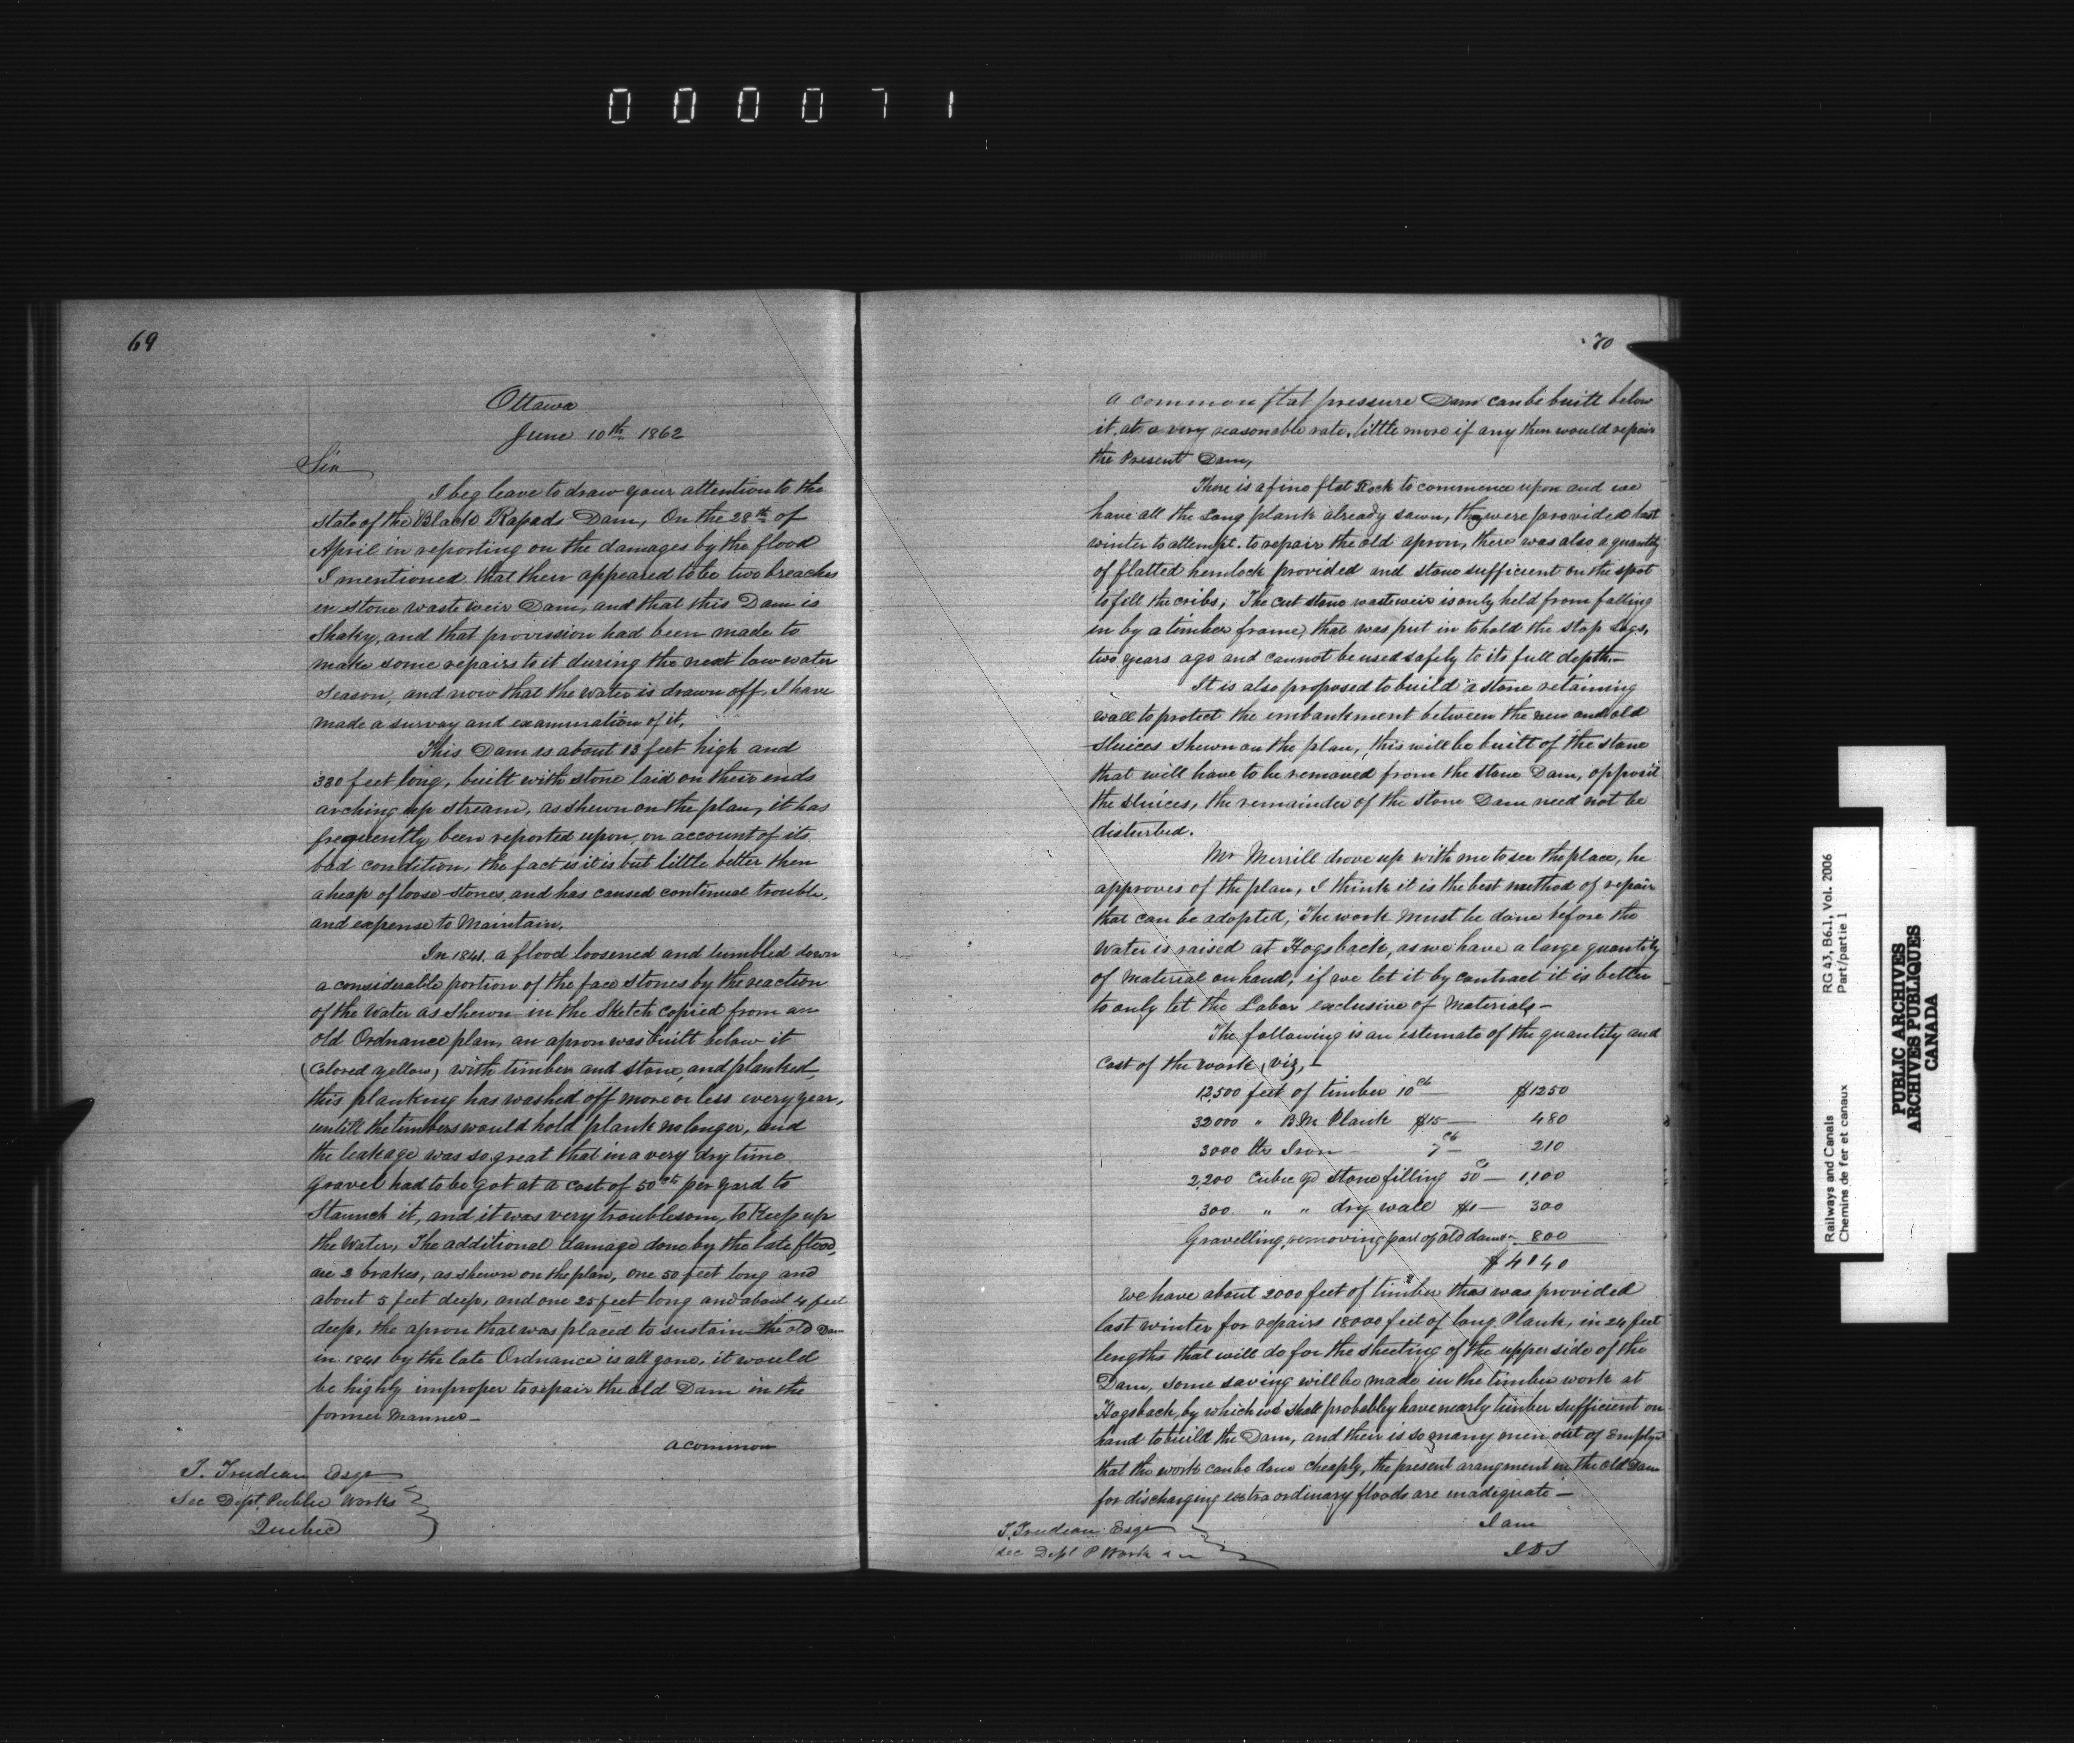 000071
69
Ottawa
June 10th 1862
Sir
I beg leave to draw your attention to the
state of the Black Rapads Dam, On the 28th of
April in reporting on the damages by the flood
I mentioned that their appeared to be two breaches
in stone waste weir Dam, and that this Dam is
Shaky, and that provission had been made to
make some repairs to it during the next low water
season, and now that the water is drawn off. I have
made a survay and examination of it,
This Dam is about 13 feet high and
330 feet long, built with stone laid on their ends
arching up stream, as shewn on the plan, it has
frequently been reported upon, on account of its
bad condition, the fact is it is but little better then
a heap of loose stones, and has caused continual trouble,
and expense to Maintain.
In 1841. a flood loosened and tumbled down
a considerable portion of the face stones by the reaction
of the Water as shewn in the Sketch copied from an
old Ordnance plan, an apron was built below it
(Colored yellow) with timber and stone, and planked,
this planking has washed off more or less every year,
untill the timbers would hold plank no longer, and
the leakage was so great that in a very dry time
gravel had to be got at a cost of 50 cts per yard to
Staunch it, and it was very troublesom, to Keep up
the Water, The additional damage done by the late flood,
are 2 brakes, as shewn on the plan, one 50 feet long and
about 5 feet deep, and one 25 feet long and about 4 feet
deep, the apron that was placed to sustain the old Dam
in 1841 by the late Ordnance is all gone, it would
be highly improper to repair the old Dam in the
former Manner—
a common
T. Trudeau Esqe
Sec Dept. Public Works
Quebec
70
a common flat pressure Dam can be built below
it, at a very reasonable rate, little more if any then would repair
the Present Dam,
There is a fine flat Rock to commence upon and we
have all the Long plank already sawn, they were provided last
winter to attempt to repair the old apron, there was also a quantity
of flatted hemlock provided and stone sufficient on the spot
to fill the cribs, The cut stone wasteweir is only held from falling
in by a timber frame, that was put in to hold the stop Logs,
two years ago and cannot be used safely to its full depth.—
It is also proposed to build a stone retaining
wall to protect the embankment between the new and old
Sluices shewn on the plan, this will be built of the stone
that will have to be removed from the stone Dam, opposit
the sluices, the remainder of the stone Dam need not be
disturbed.
Mr Merrill drove up with me to see the place, he
approves of the plan, I think it is the best method of repair
that can be adopted, The work must be done before the
Water is raised at Hogsback, as we have a large quantity
of Material on hand, if we let it by contract it is better
to only let the Labor exclusive of Materials—
The following is an estemate of the quantity and
Cost of the work, viz,—
12,500 feet of timber 10 cts — $1250
32000 " B.M Plank $15 — 480
3000 lbs Iron — 7 cts — 210
2,200 Cubic yd stone filling 50 c — 1,100
300 " " dry wall $1 — 300
Gravelling, removing part of old dam — 800
$4140
We have about 2000 feet of timber thas was provided
last winter for repairs 18000 feet of long Plank, in 24 feet
lengths that will do for the sheeting of the upper side of the
Dam, some saving will be made in the timber work at
Hogsback, by which we shall probabley have nearly timber sufficient on
hand to build the Dam, and their is so many men out of Employ
that the work can be done cheaply, the present arangment in the old Dam
for discharging extra ordinary floods are inadequate—
I am
J D S
T. Trudeau Esqe
Sec Dept P Work
RG 43, B6.1, Vol. 2006
Part/partie 1
Railways and Canals
Chemins de fer et canaux
PUBLIC ARCHIVES
ARCHIVES PUBLIQUES
CANADA